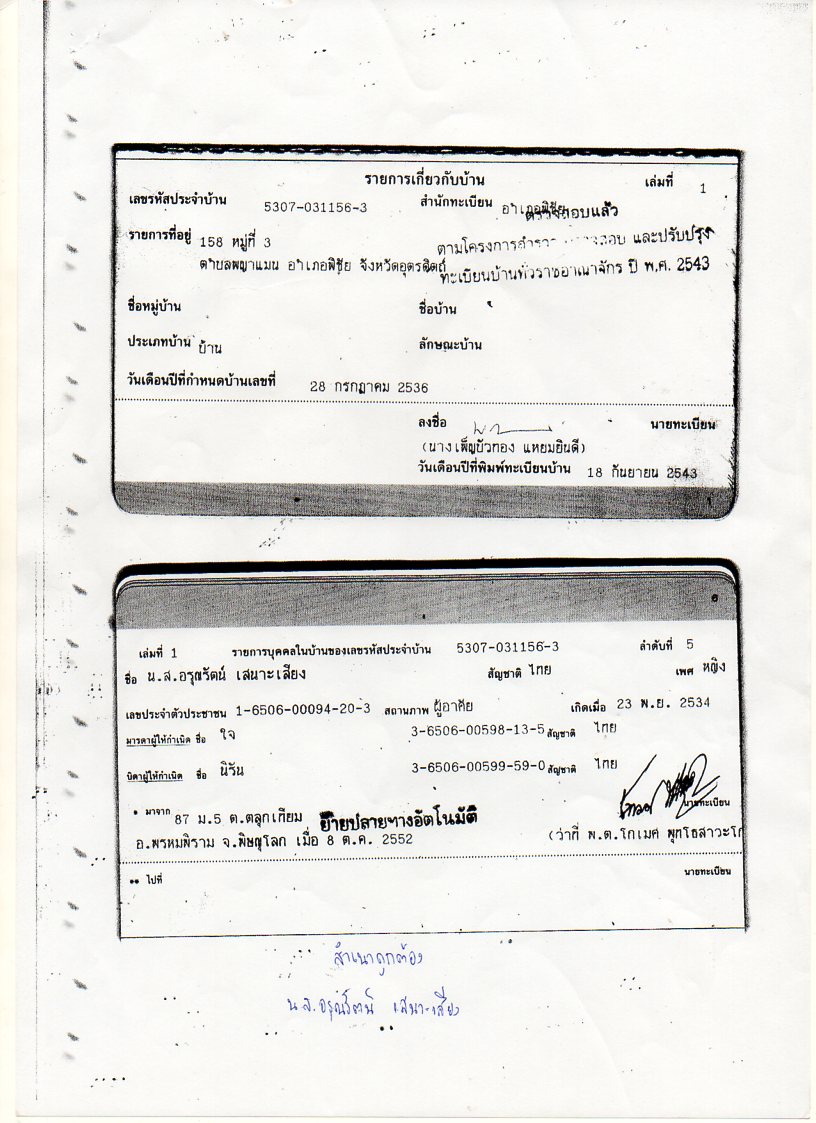 รายการเกี่ยวกับบ้าน เล่มที่ 1
เลขรหัสประจำบ้าน 5307-031156-3 สำนักทะเบียน อำเภอพิชัย
ตรวจสอบแล้ว
รายการที่อยู่ 158 หมู่ที่ 3
ตามโครงการสำรวจ ตรวจสอบ และปรับปรุง
ตำบลพญาแมน อำเภอพิชัย จังหวัดอุตรดิตถ์
ทะเบียนบ้านทั่วราชอาณาจักร ปี พ.ศ. 2543
ชื่อหมู่บ้าน ชื่อบ้าน
ประเภทบ้าน บ้าน ลักษณะบ้าน
วันเดือนปีที่กำหนดบ้านเลขที่ 28 กรกฎาคม 2536
ลงชื่อ นายทะเบียน
(นางเพ็ญบัวทอง แหยมยินดี)
วันเดือนปีที่พิมพ์ทะเบียนบ้าน 18 กันยายน 2543
เล่มที่ 1 รายการบุคคลในบ้านของเลขรหัสประจำบ้าน 5307-031156-3 ลำดับที่ 5
ชื่อ น.ส.อรุณรัตน์ เสนาะเสียง สัญชาติ ไทย เพศ หญิง
เลขประจำตัวประชาชน 1-6506-00094-20-3 สถานภาพ ผู้อาศัย เกิดเมื่อ 23 พ.ย. 2534
มารดาผู้ให้กำเนิด ชื่อ ใจ 3-6506-00598-13-5 สัญชาติ ไทย
บิดาผู้ให้กำเนิด ชื่อ นิรัน 3-6506-00599-59-0 สัญชาติ ไทย
* มาจาก 87 ม.5 ต.ตลุกเทียม ย้ายปลายทางอัตโนมัติ นายทะเบียน
อ.พรหมพิราม จ.พิษณุโลก เมื่อ 8 ต.ค. 2552 (ว่าที่ พ.ต.โกเมศ พุทโธสาวะโก
** ไปที่ นายทะเบียน
สำเนาถูกต้อง
น.ส.อรุณรัตน์ เสนาะเสียง